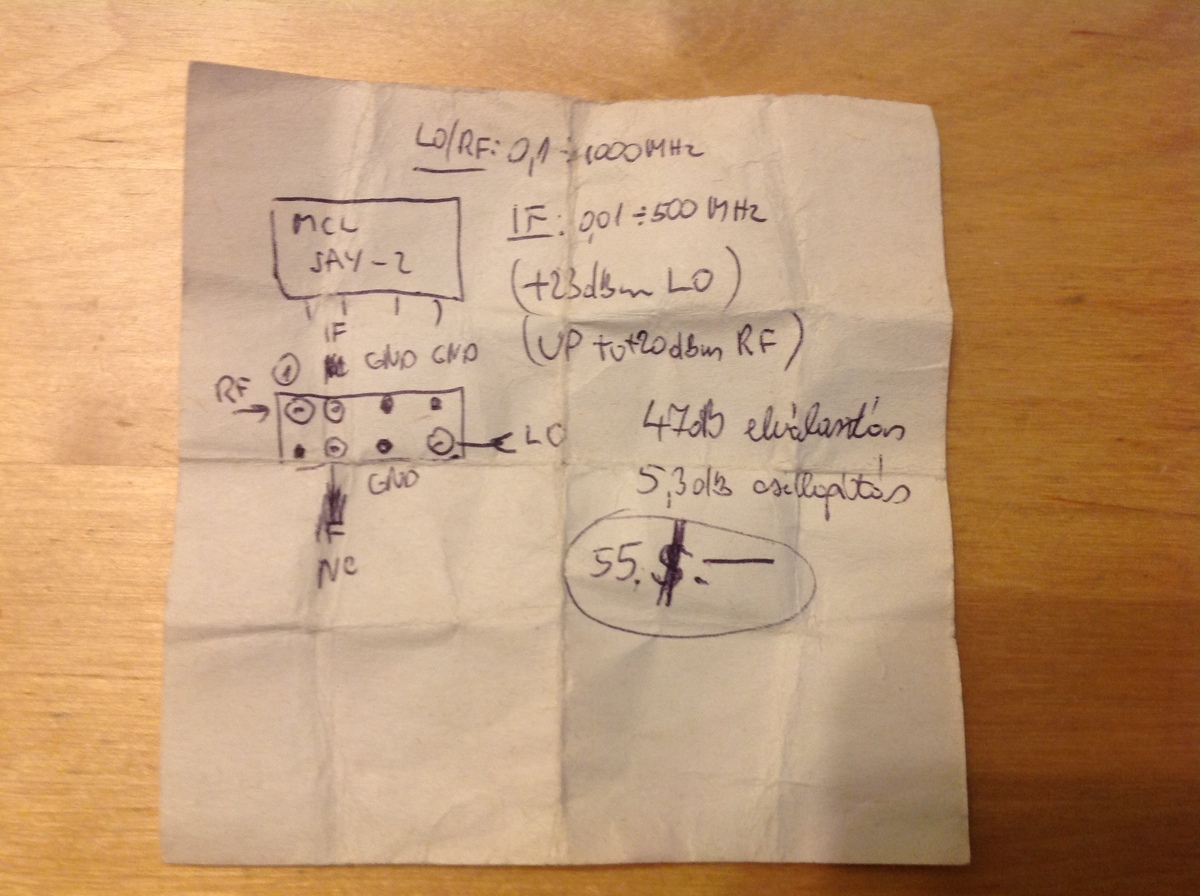 LO/RF: 0,1 ÷ 1000 MHz
MCL
SAY-2
IF: 0,01 ÷ 500 MHz
(+23dBm LO)
(UP to +20dBm RF)
IF
1 GND GND
RF
LO
GND
IF
NC
47dB elválasztás
5,3dB csillapítás
55.$.—